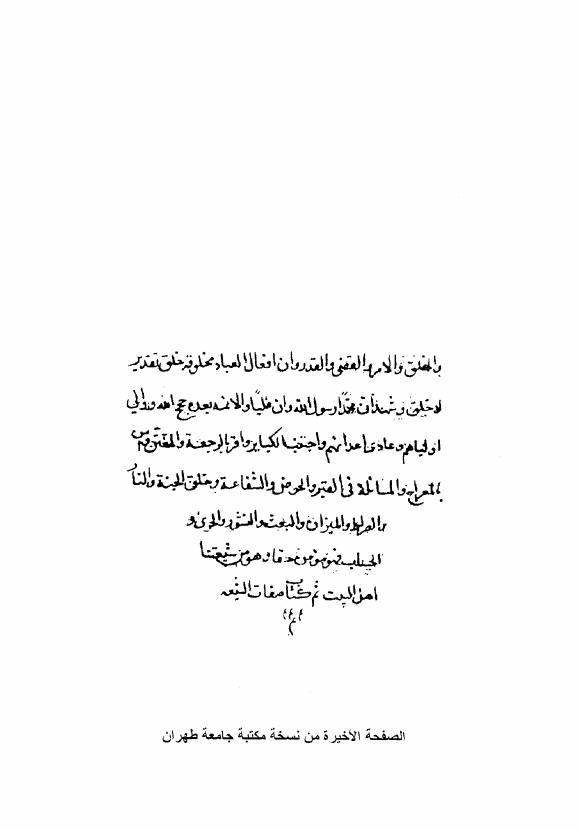 والخلق والامر والقضى والقدر وان افعال العباد مخلوقة خلق تقدير
لا خلق و شهد ان محمدًا رسول الله وان عليًا والائمة بعده حجج الله ووالي
اوليائهم وعادى اعدائهم واجتنب الكباير واقر بالرجعة والمتعتين وامن
بالمعراج والمسائلة في القبر والحوض والشفاعة وخلق الجنة والنار
والصراط والميزان والبعث والنشور والجزى و
الحساب فهو مؤمن حقا وهو من شيعتنا
اهل البيت تم كتاب صفات الشيعه
الصفحة الأخيرة من نسخة مكتبة جامعة طهران